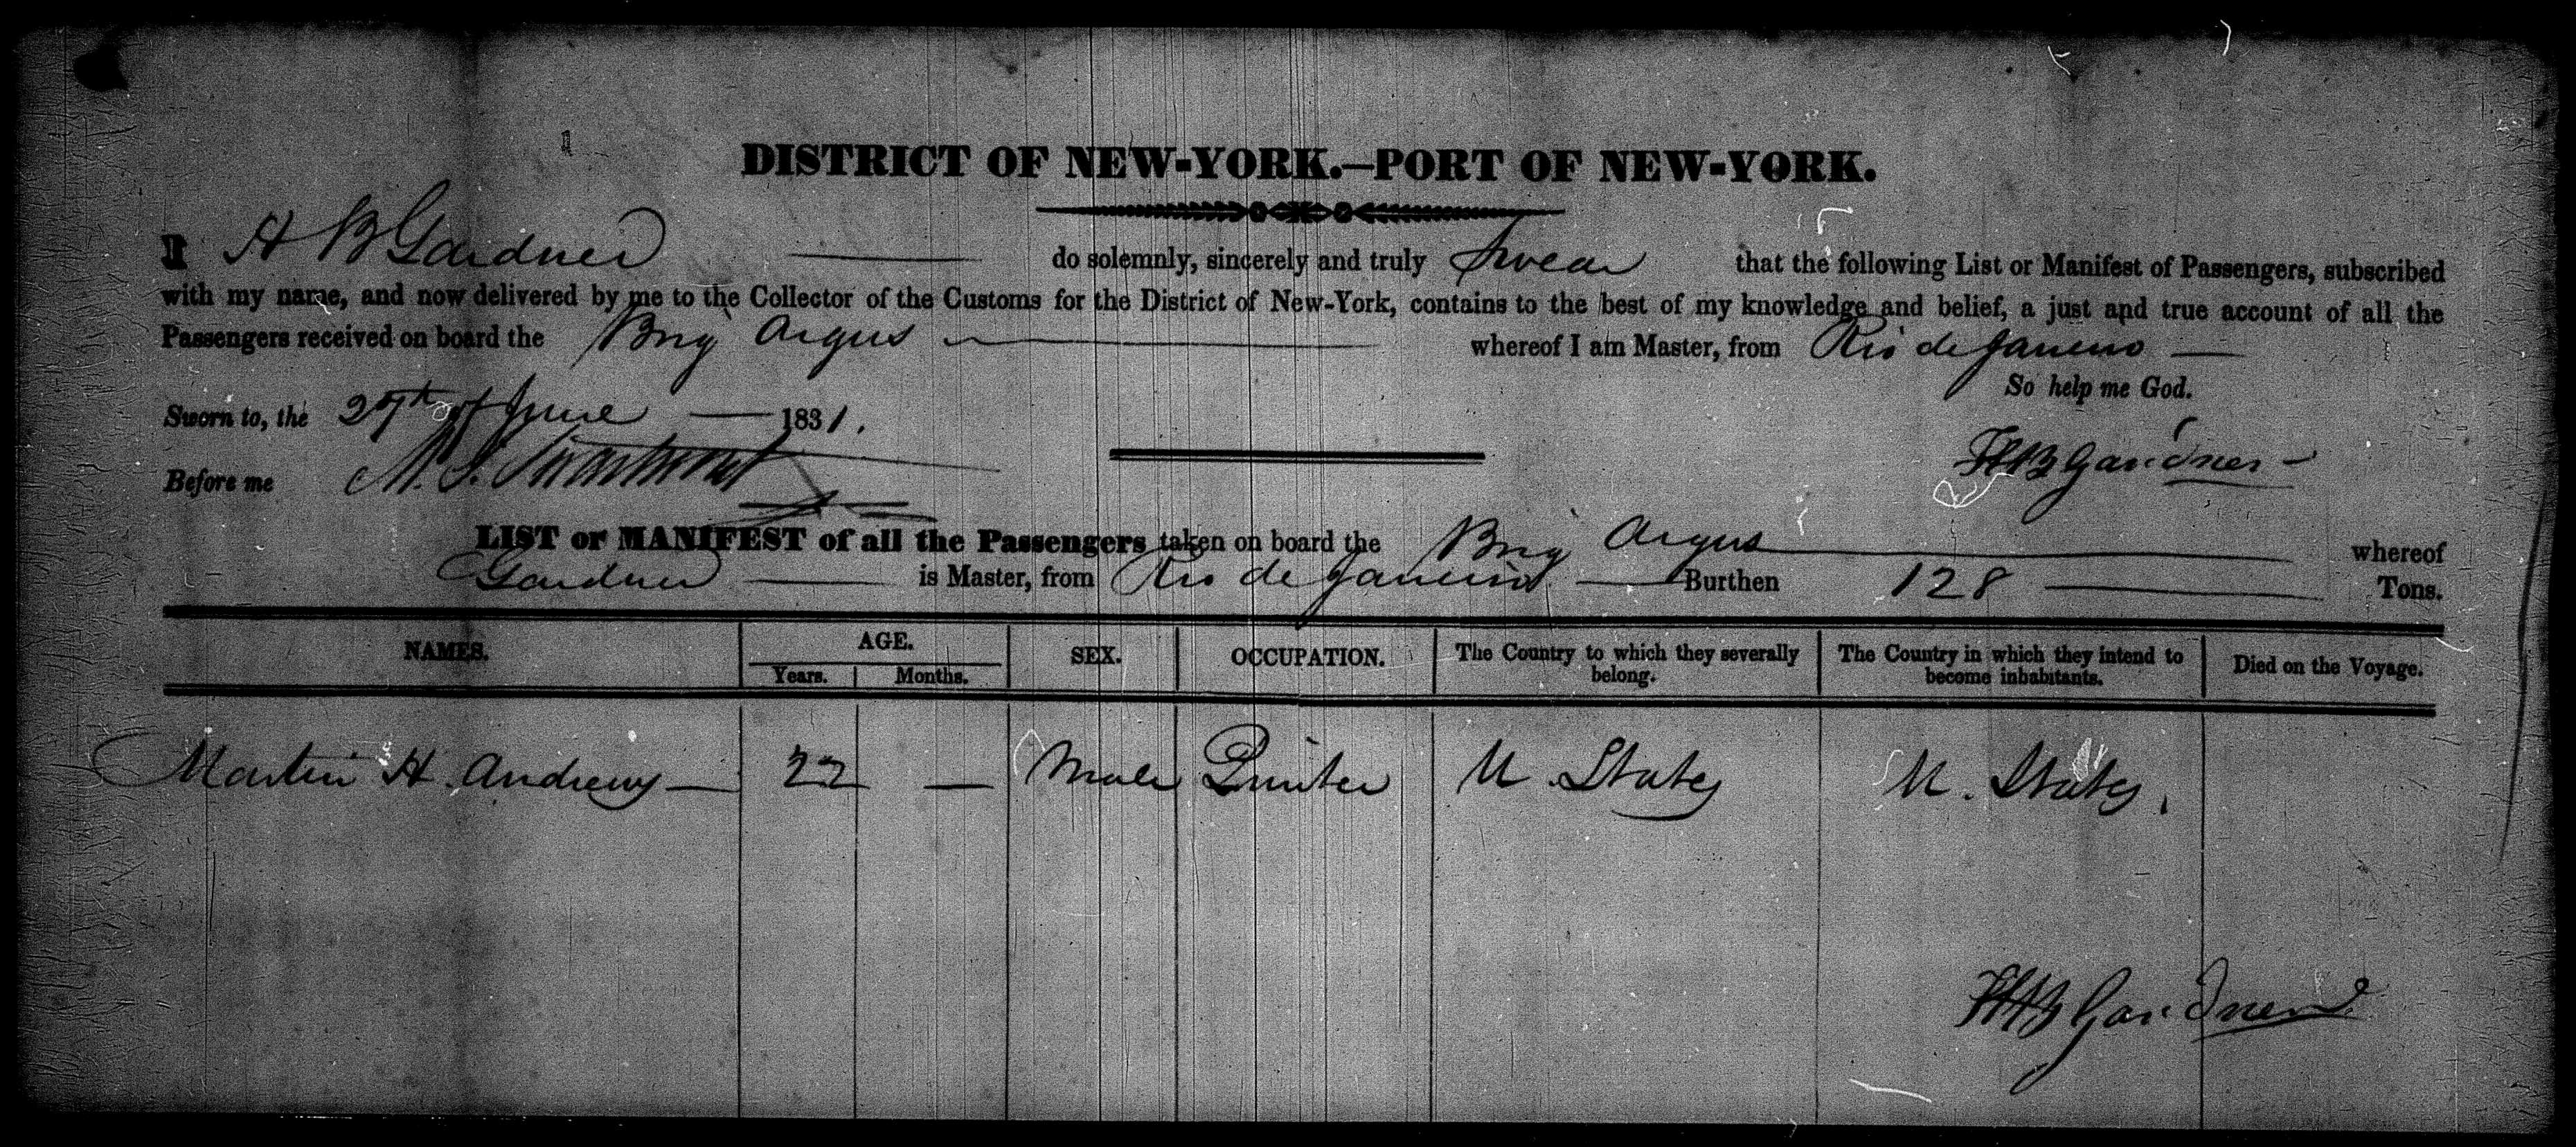 DISTRICT OF NEW-YORK.—PORT OF NEW-YORK.
I H B Gardner do solemnly, sincerely and truly swear that the following List or Manifest of Passengers, subscribed
with my name, and now delivered by me to the Collector of the Customs for the District of New-York, contains to the best of my knowledge and belief, a just and true account of all the
Passengers received on board the Brig Argus whereof I am Master, from Rio de Janeiro
So help me God.
Sworn to, the of June 1831.
H B Gardner
Before me M. S. Swartwout
LIST or MANIFEST of all the Passengers taken on board the Brig Argus whereof
Gardner is Master, from Rio de Janeiro Burthen 128 Tons.
NAMES. AGE. SEX. OCCUPATION. The Country to which they severally belong. The Country in which they intend to become inhabitants. Died on the Voyage.
Years. Months.
Martin H. Andrews 22 — Male Printer U. States U. States.
H B Gardner